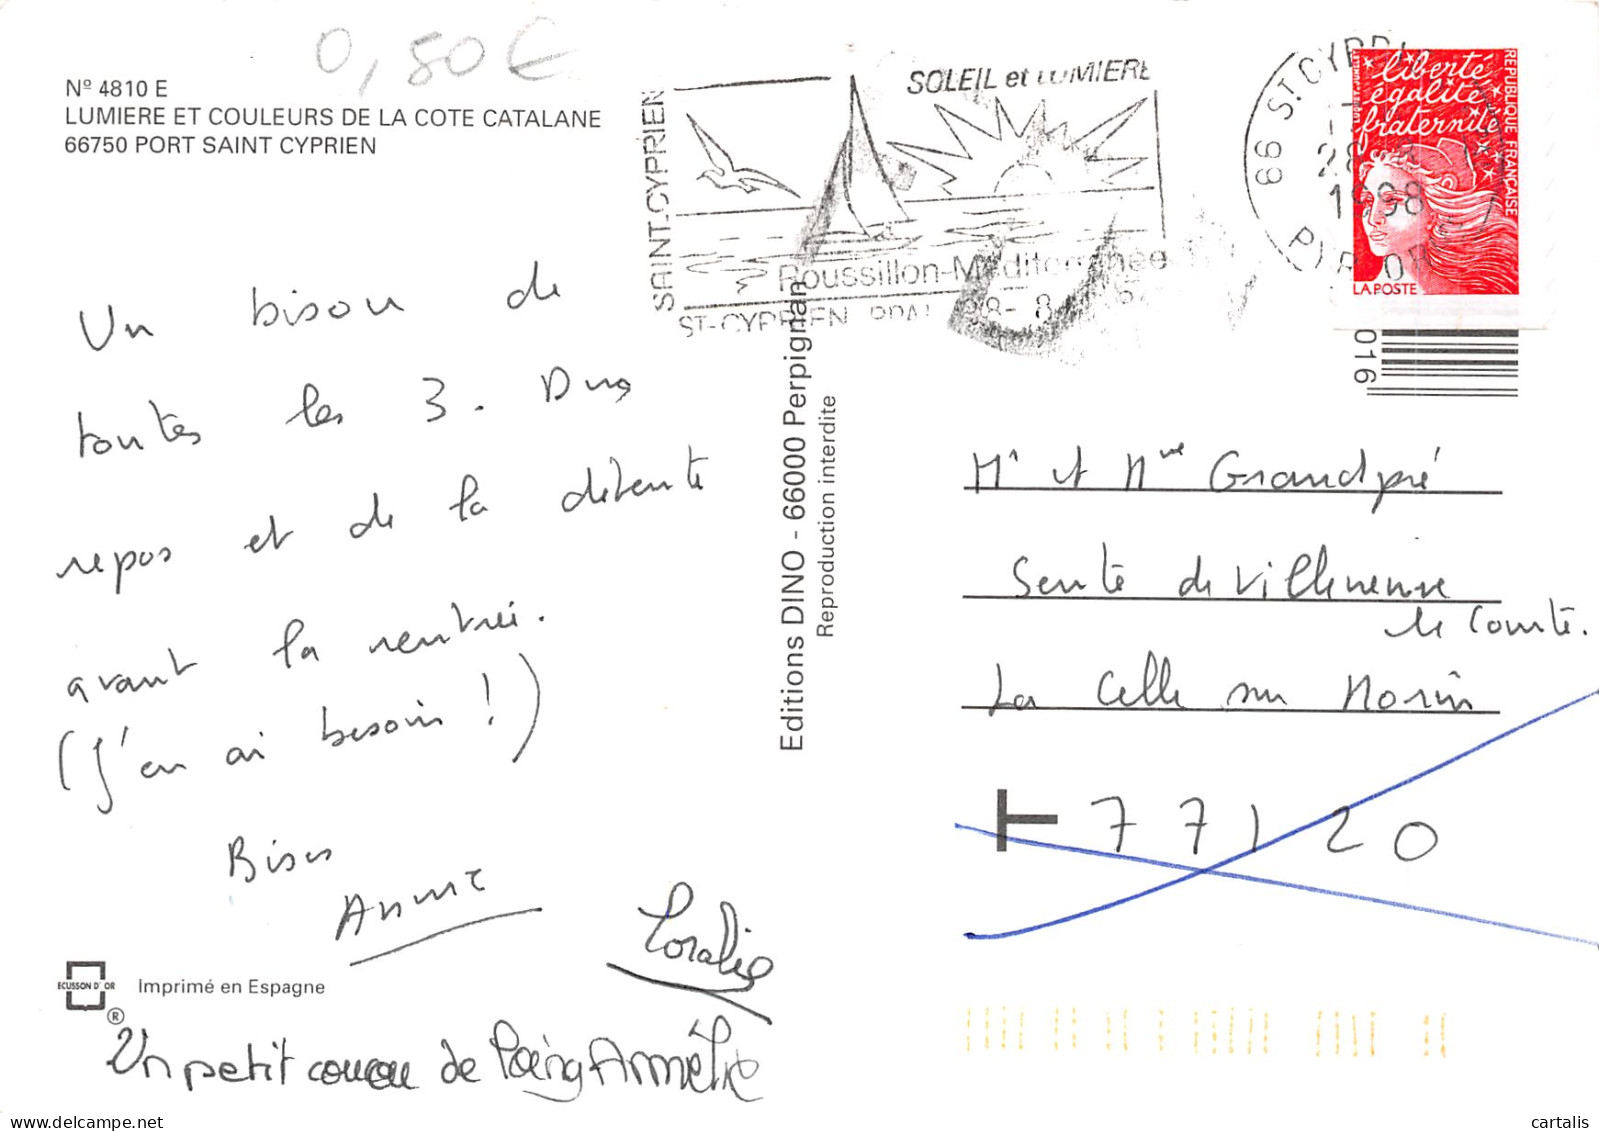 0,50€
Nº 4810 E
LUMIERE ET COULEURS DE LA COTE CATALANE
66750 PORT SAINT CYPRIEN
SAINT.CYPRIEN
SOLEIL et LUMIERE
Roussillon-Méditerranée
ST-CYPRIEN PPAL
66 ST.CYPRI
28
1998
PYR. OR
liberté
égalité
fraternité
REPUBLIQUE FRANÇAISE
LA POSTE
016
Un bisou de
toutes les 3. Du
repos et de la détente
avant la rentrée.
(J'en ai besoin !)
Bises
Anne
Coralie
Un petit coucou de Armélie
Editions DINO - 66000 Perpignan
Reproduction interdite
Mr et Mme Grandpré
Sente de Villeneuve
le Comte.
La Celle sur Morin
77120
ECUSSON D'OR
®
Imprimé en Espagne
cartalis